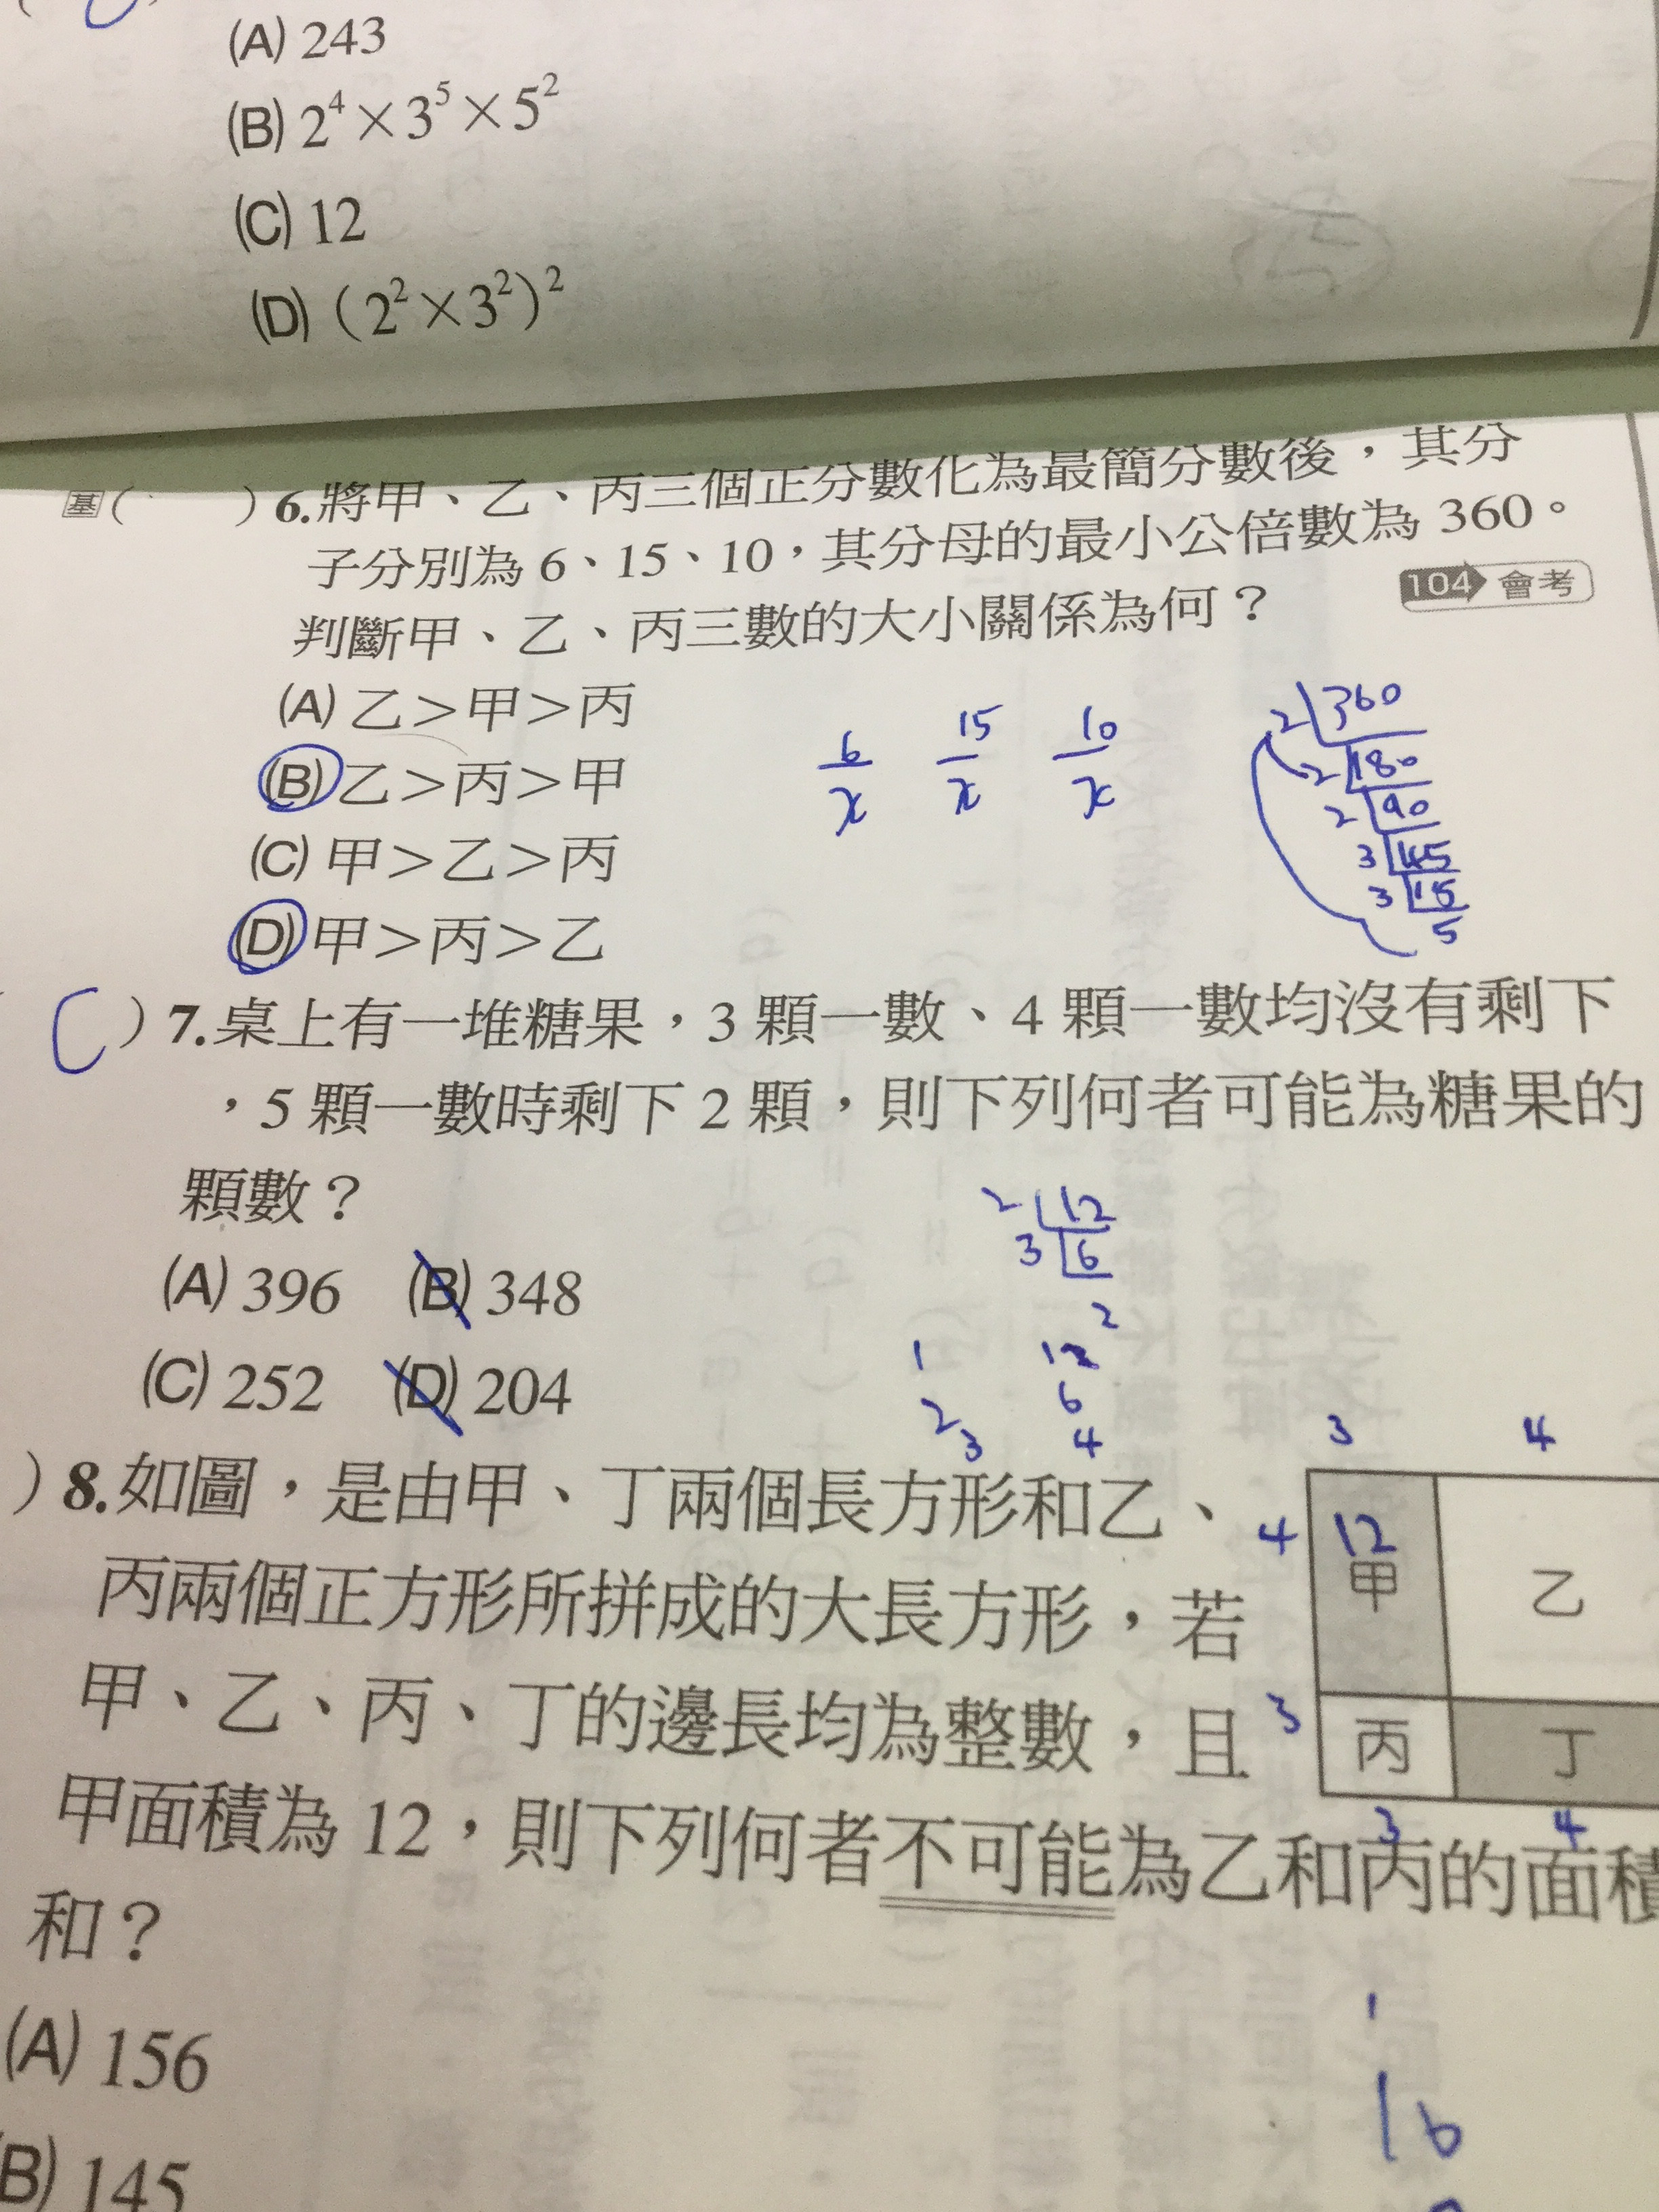 (A) 243
(B) 2⁴×3⁵×5²
(C) 12
(D) (2²×3²)²
基( ) 6.將甲、乙、丙三個正分數化為最簡分數後，其分
子分別為 6、15、10，其分母的最小公倍數為 360。
判斷甲、乙、丙三數的大小關係為何？ 104 會考
(A) 乙＞甲＞丙
(B) 乙＞丙＞甲
(C) 甲＞乙＞丙
(D) 甲＞丙＞乙
6/x 15/x 10/x
2 360
2 180
2 90
3 45
3 15
5
C ) 7.桌上有一堆糖果，3 顆一數、4 顆一數均沒有剩下
，5 顆一數時剩下 2 顆，則下列何者可能為糖果的
顆數？
(A) 396 (B) 348
(C) 252 (D) 204
2 12
3 6
2
1 12
2 6
3 4
) 8.如圖，是由甲、丁兩個長方形和乙、
丙兩個正方形所拼成的大長方形，若
甲、乙、丙、丁的邊長均為整數，且
甲面積為 12，則下列何者不可能為乙和丙的面積
和？
(A) 156
(B) 145
3 4
4 12
甲 乙
3 丙 丁
3 4
1
16